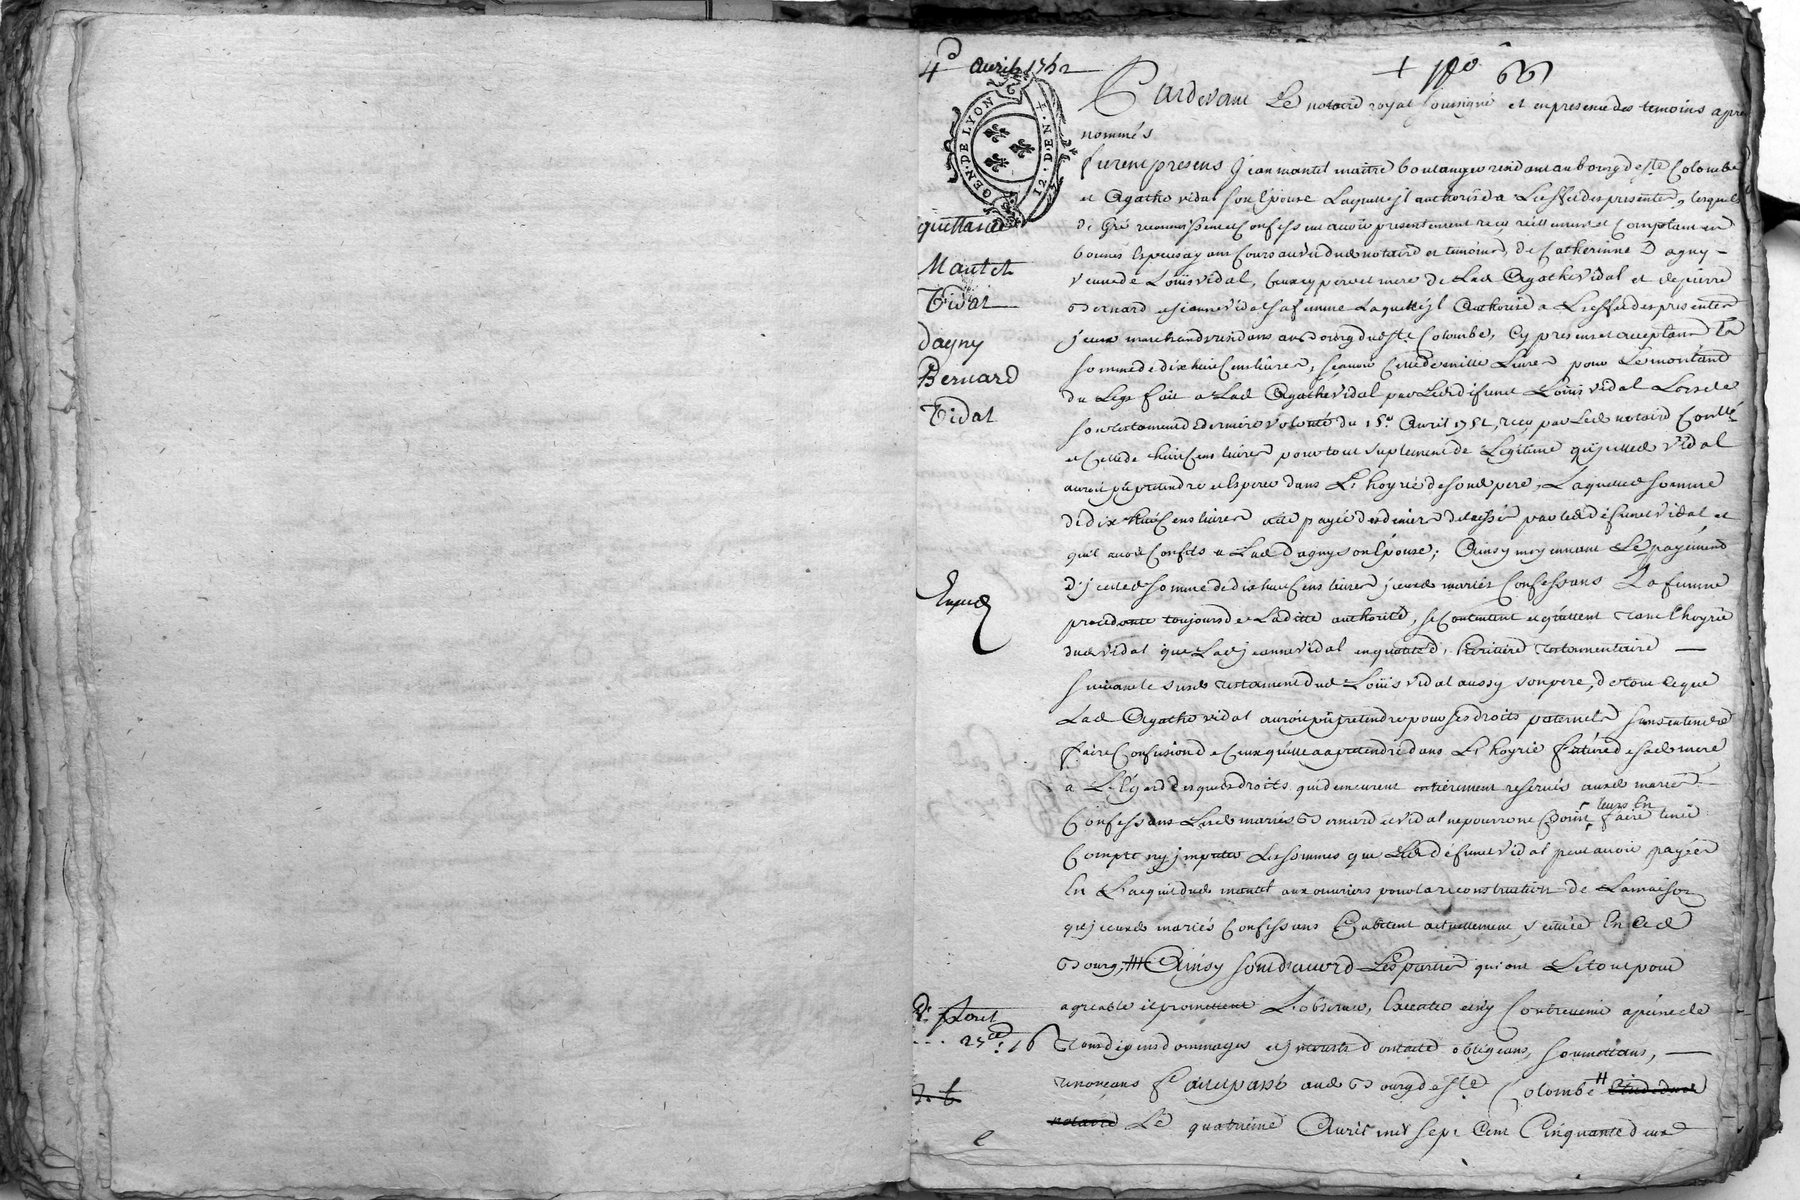 4e Avril 1752
+ No 66
GEN. DE LYON
12. D. EN. 4
quittance
Mantel
Vidal
Dagny
Bernard
Vidal
Pardevant Le notaire royal soussigné et en presence des temoins apres
nommés
furent presens Jean mantel maitre boulanger residant au bourg de ste Colombe
et Agathe vidal son Epouse Laquelle il authorise a Leffet des presentes, lesquels
de Gré reconnoissent et Confessent avoir presentement reçu réellement et Comptant en
bonnes Especes ayans Cours au vû dud notaire et temoins, de Catherinne Dagny -
veuve de Louïs vidal, beaux pere et mere de Lad Agathe vidal et de pierre
Bernard et jeanne vidal sa femme Laquelle il Authorise a Leffet des presentes
jceux marchands residans aud bourg de ste Colombe, Cy presens et acceptans La
somme de dix huit Cens livres, sçavoir Celle de mille Livres pour Le montant
du Legs fait a Lad Agathe vidal par Led difunt Louïs vidal Lors de
son testament et derniere volonté du 15e Avril 1751, reçu par Led notaire
et Celle de huit Cens livres pour tout suplement de Légitime qu'jcelle vidal
auroit pû pretendre et Esperer dans L'hoyrie de sond pere, Laquelle somme
de dix huit Cens livres a été payée des deniers delaissés par led défunt vidal et
qu'il avoit Confiés a Lad Dagny son Epouse; Ainsy moyennant Le payement
d'jcelle somme de dix huit Cens livres jceux mariés Confessans La femme
procedante toujours de Laditte authorité, se Contentent et quittent tant L'hoyrie
dud vidal que Lad jeanne vidal en qualité d'heritiere testamentaire
suivant le susd testament dud Louïs vidal aussy son pere, de tout Ce que
Lad Agathe vidal auroit pû pretendre pour ses droits paternels sans entendre
faire Confusion de Ceux qu'elle a a pretendre dans L'hoyrie future de sad mere
a L'Egard desquels droits qui demeurent entierement reservés auxd mariés
Confessans Lesd mariés Bernard et vidal ne pourront point leurs En faire tenir
Compte ny jmputer Les sommes que Led défunt vidal peut avoir payées
En L'acquit dud mantel aux ouvriers pour la reconstruction de La maison
qu'jceux mariés Confessans habitent actuellement, scituée En Ced
Bourg, Ainsy sont d'accord Les parties qui ont Le tout pour
agreable et promettent L'observer, Executer et n'y Contrevenir a peine de
Tous depens dommages et jnterets dont acte obligeans, soumettans,
renonçans fait et passé aud Bourg de ste Colombe
notaire Le quatrieme Avril mil sept Cent Cinquante deux